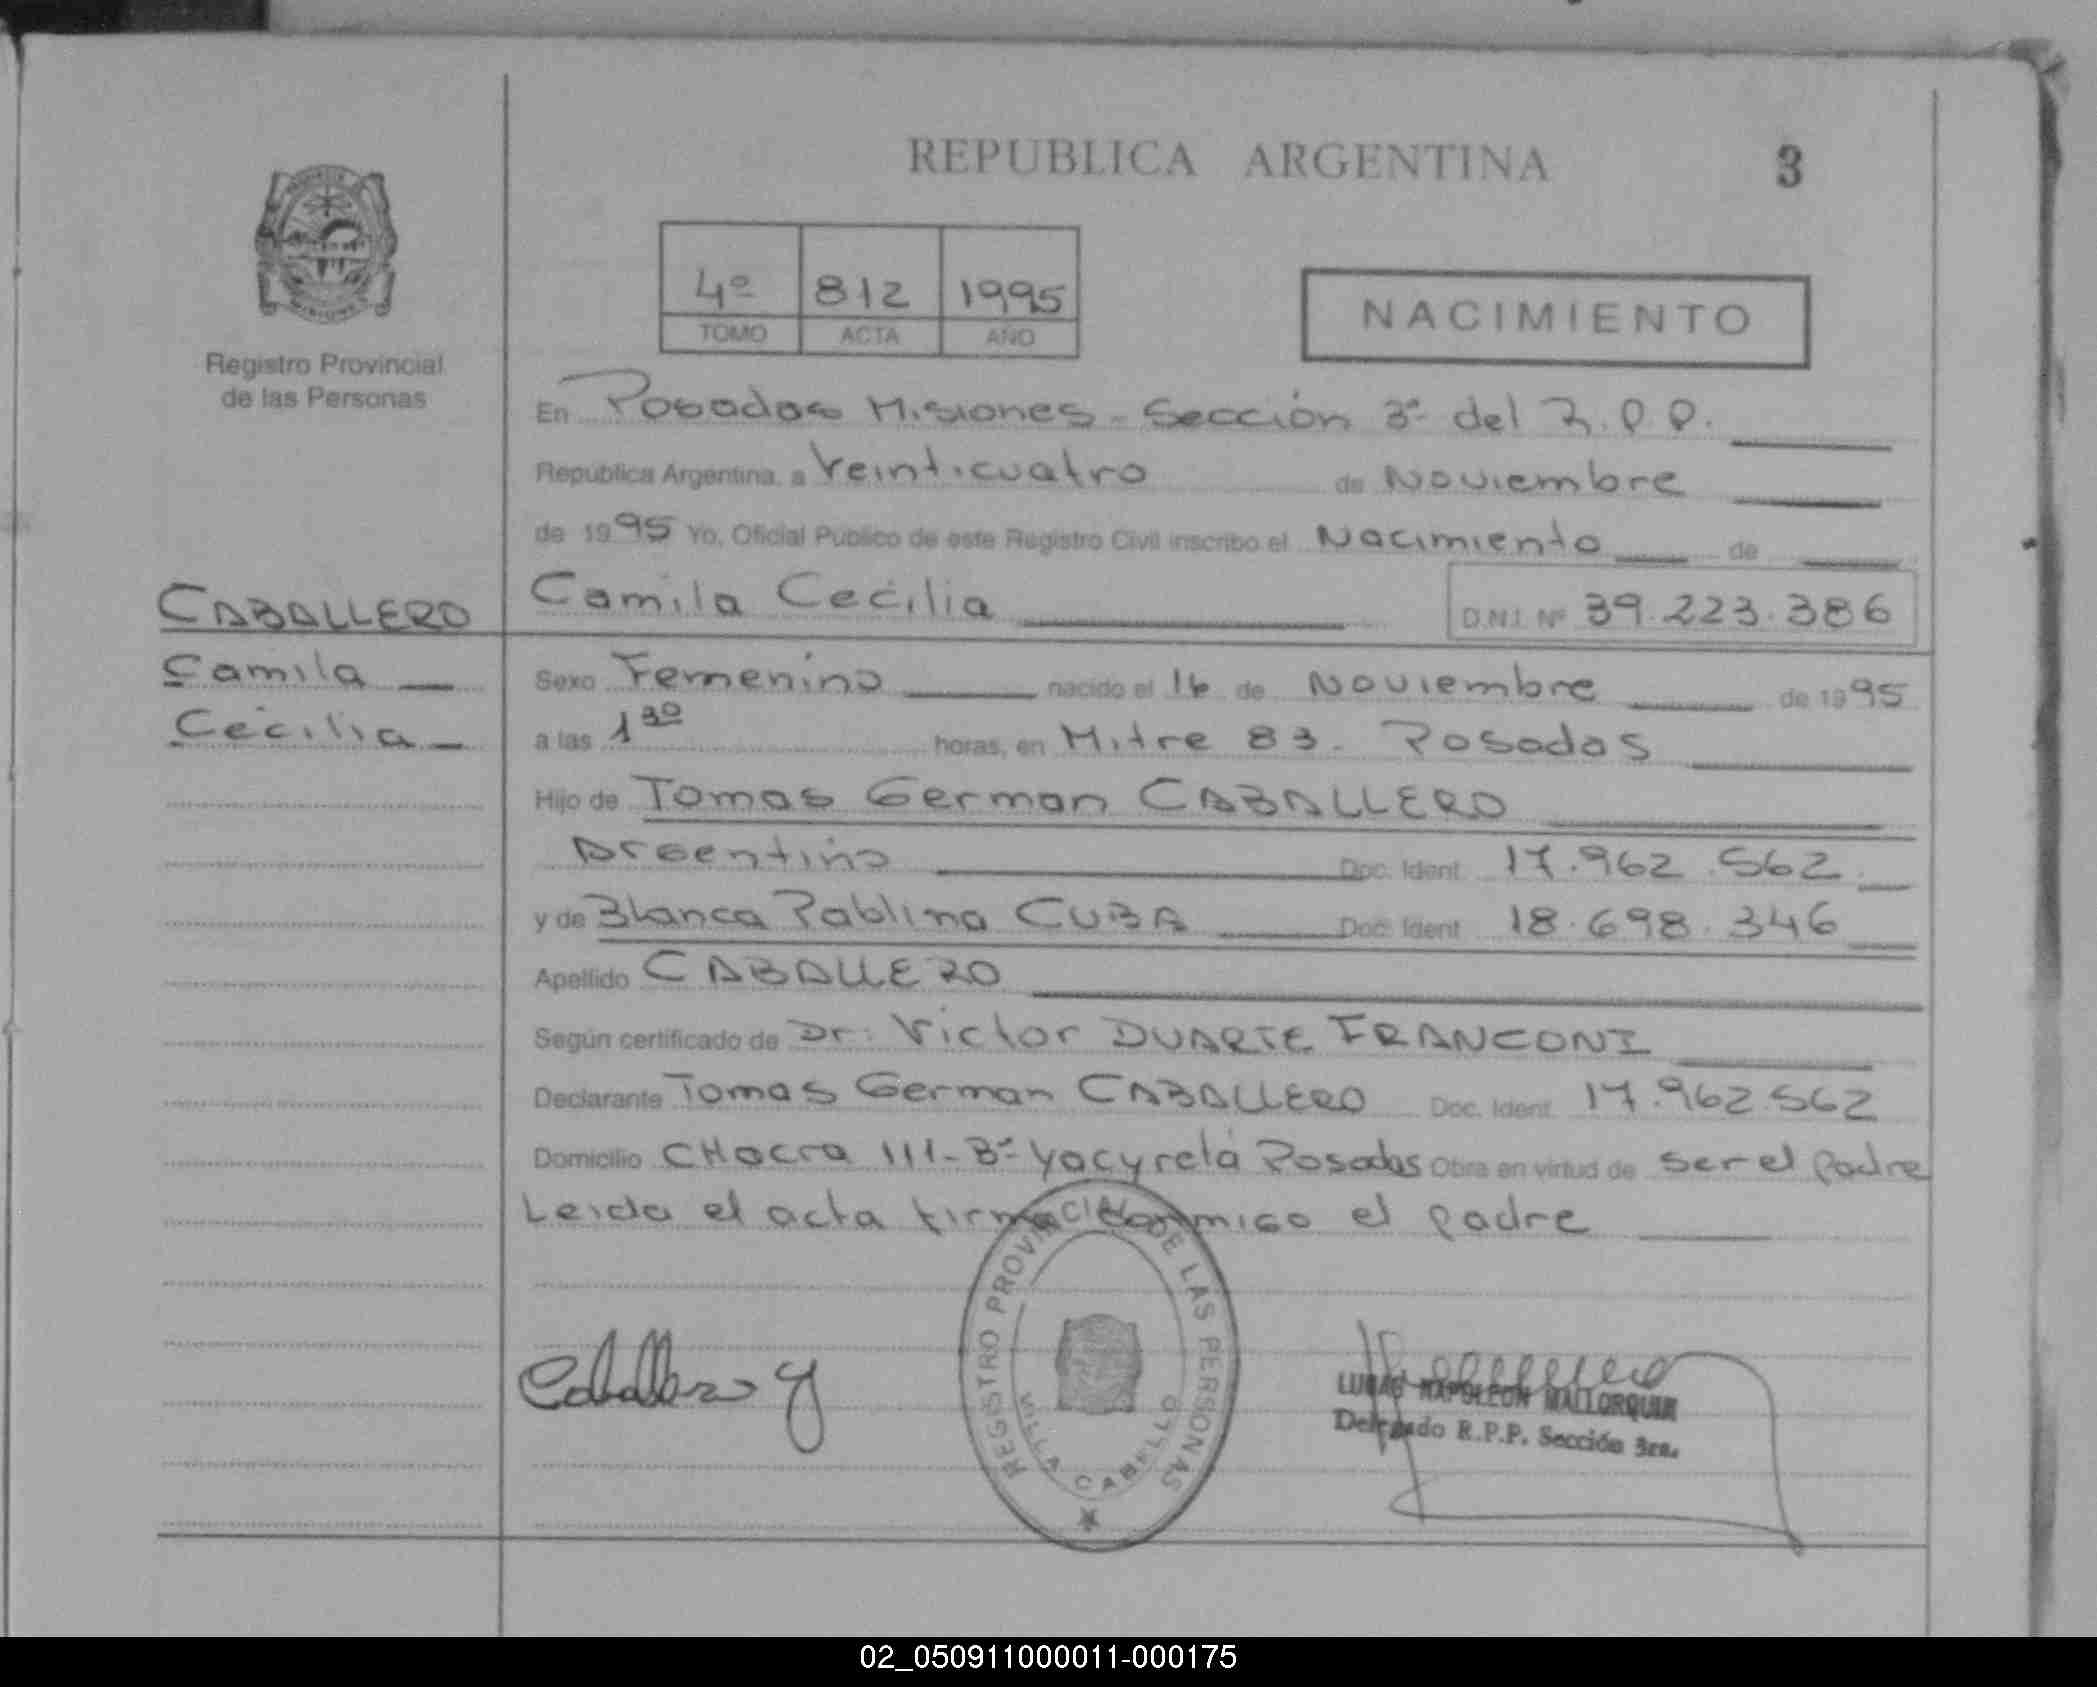 REPUBLICA ARGENTINA
3
4º 812 1995
TOMO ACTA AÑO
NACIMIENTO
Registro Provincial
de las Personas
En Posadas Misiones - Sección 3ª del R.P.P.
República Argentina, a Veinticuatro de Noviembre
de 1995 Yo, Oficial Publico de este Registro Civil inscribo el Nacimiento de
CABALLERO
Camila Cecilia
D.N.I. Nº 39.223.386
Camila
Cecilia
Sexo Femenino nacido el 16 de Noviembre de 1995
a las 1 30 horas, en Mitre 83. Posadas
Hijo de Tomas German CABALLERO
Argentino Doc. Ident. 17.962.562
y de Blanca Pablina CUBA Doc. Ident 18.698.346
Apellido CABALLERO
Según certificado de Dr: Victor DUARTE FRANCONI
Declarante Tomas German CABALLERO Doc. Ident. 17.962.562
Domicilio CHacra 111-Bº Yacyretá Posadas Obra en virtud de ser el padre
Leida el acta firma conmigo el padre
REGISTRO PROVINCIAL DE LAS PERSONAS
VILLA CABELLO
Caballero
LUCAS NAPOLEON MALLORQUIN
Delegado R.P.P. Sección 3ra.
02_050911000011-000175